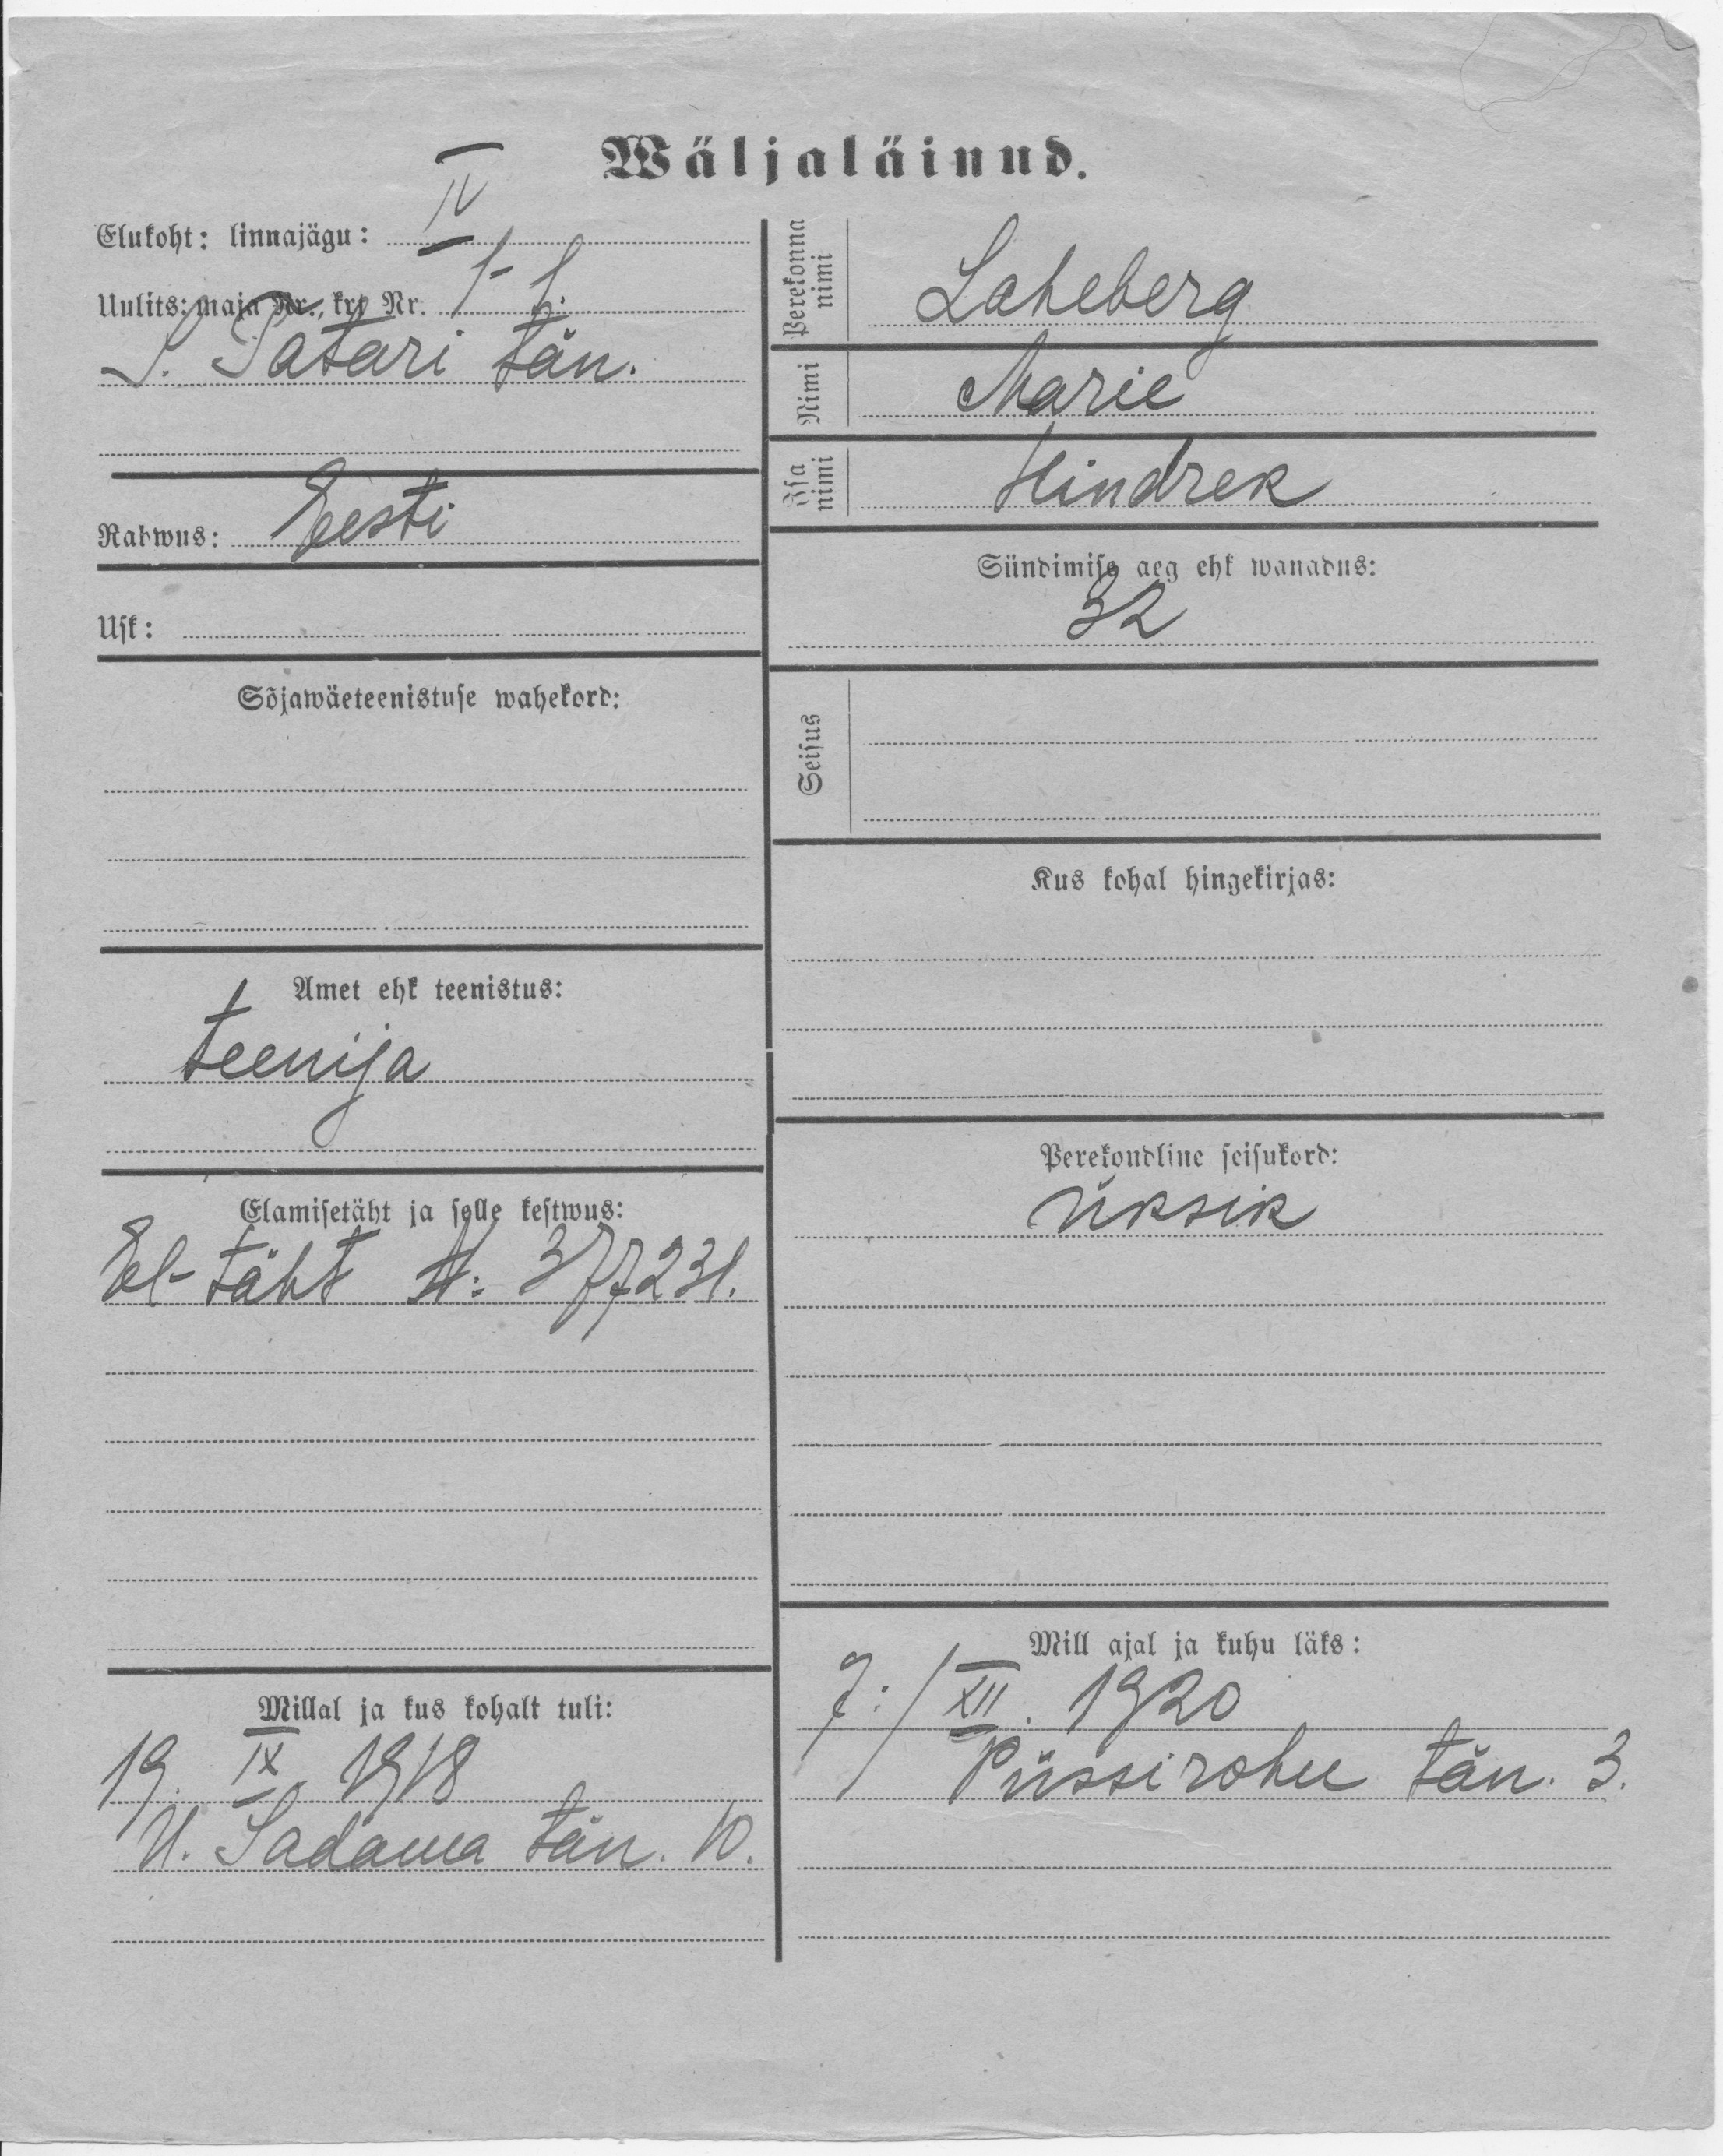 Wäljaläinud.
Elukoht: linnajägu: IV
Uulits: maja Nr., krt Nr. 1-1
S. Patari tän.
Rahwus: Eesti
Usk:
Sõjawäeteenistuse wahekord:
Amet ehk teenistus:
teenija
Elamisetäht ja selle kestwus:
El-täht N: 377231.
Millal ja kus kohalt tuli:
19. IX. 1918
U. Sadama tän. 10.
Perekonna nimi Laheberg
Nimi Marie
Isa nimi Hindrek
Sündimise aeg ehk wanadus:
32
Seisus
Kus kohal hingekirjas:
Perekondline seisukord:
üksik
Mill ajal ja kuhu läks:
7:/XII. 1920
Püssirohu tän. 3.